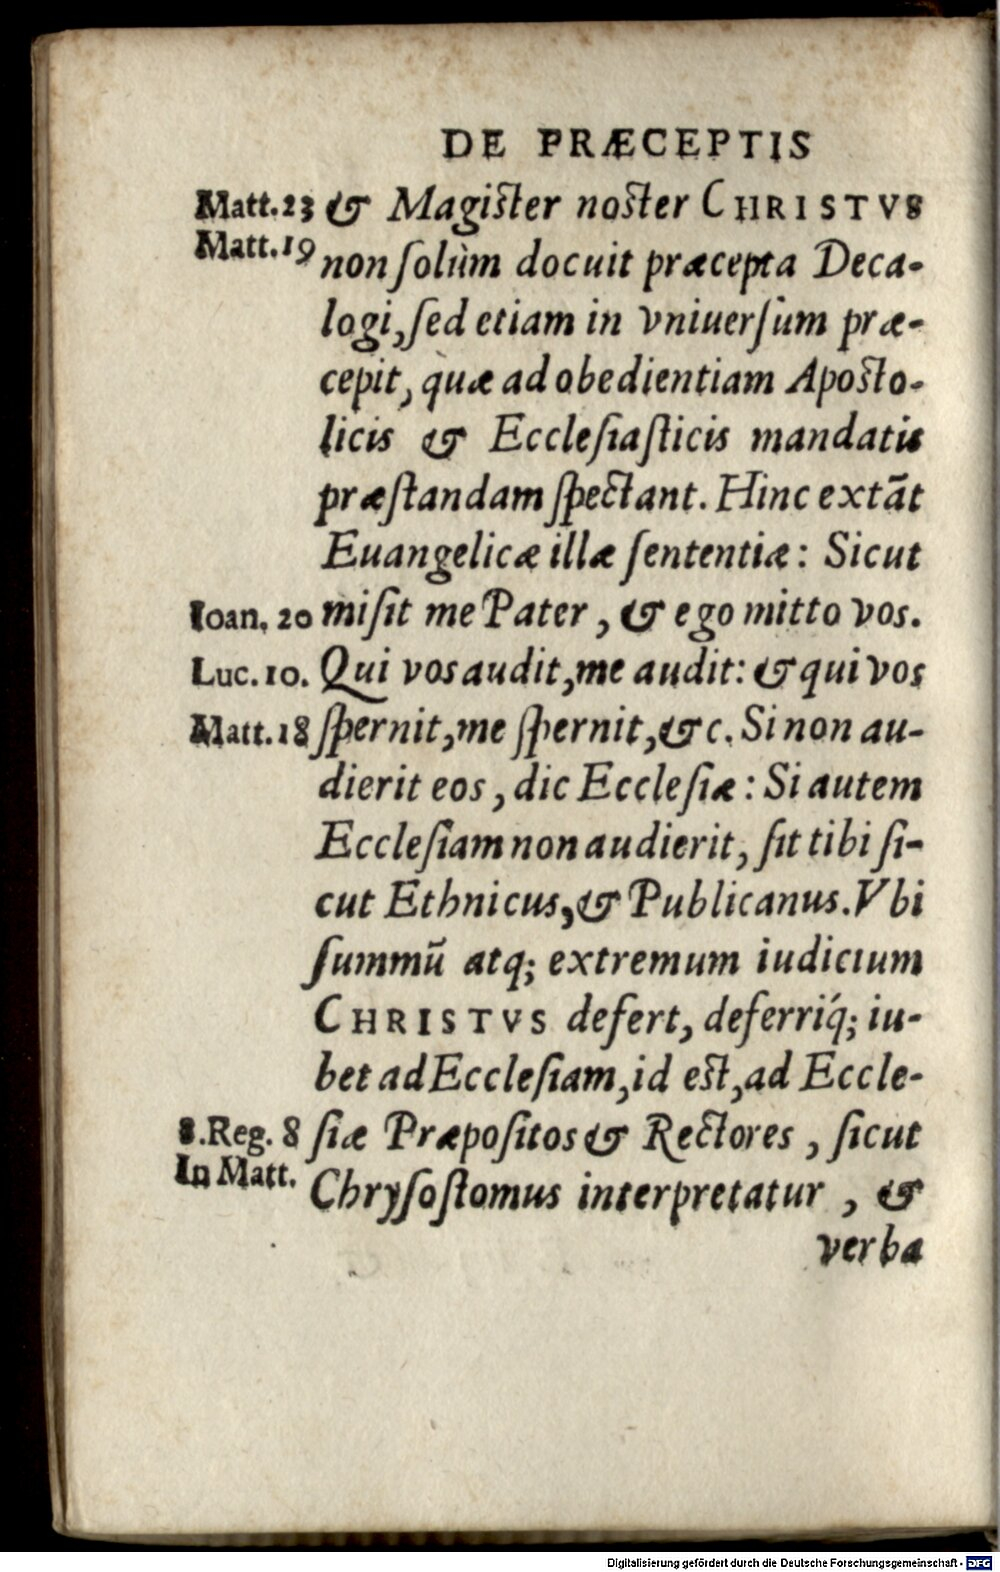 DE PRÆCEPTIS
Matt. 23 & Magiſter noſter CHRISTVS
Matt. 19 non ſolùm docuit præcepta Deca-
logi, ſed etiam in vniuerſum præ-
cepit, quæ ad obedientiam Apoſto-
licis & Eccleſiaſticis mandatis
præſtandam ſpectant. Hinc extãt
Euangelicæ illæ ſententiæ: Sicut
Ioan. 20 miſit me Pater, & ego mitto vos.
Luc. 10. Qui vos audit, me audit: & qui vos
Matt. 18 ſpernit, me ſpernit, &c. Si non au-
dierit eos, dic Eccleſiæ: Si autem
Eccleſiam non audierit, ſit tibi ſi-
cut Ethnicus, & Publicanus. Vbi
ſummũ atq; extremum iudicium
CHRISTVS defert, deferriq́; iu-
bet ad Eccleſiam, id eſt, ad Eccle-
8. Reg. 8 ſiæ Præpoſitos & Rectores, ſicut
In Matt. Chryſoſtomus interpretatur, &
verba
Digitalisierung gefördert durch die Deutsche Forschungsgemeinschaft - DFG